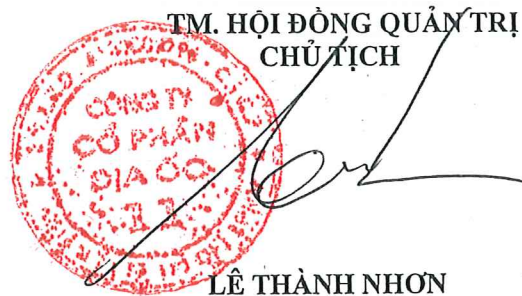 TM. HỘI ĐỒNG QUẢN TRỊ
CHỦ TỊCH
CÔNG TY
CỔ PHẦN
ĐỊA ỐC
11
LÊ THÀNH NHƠN